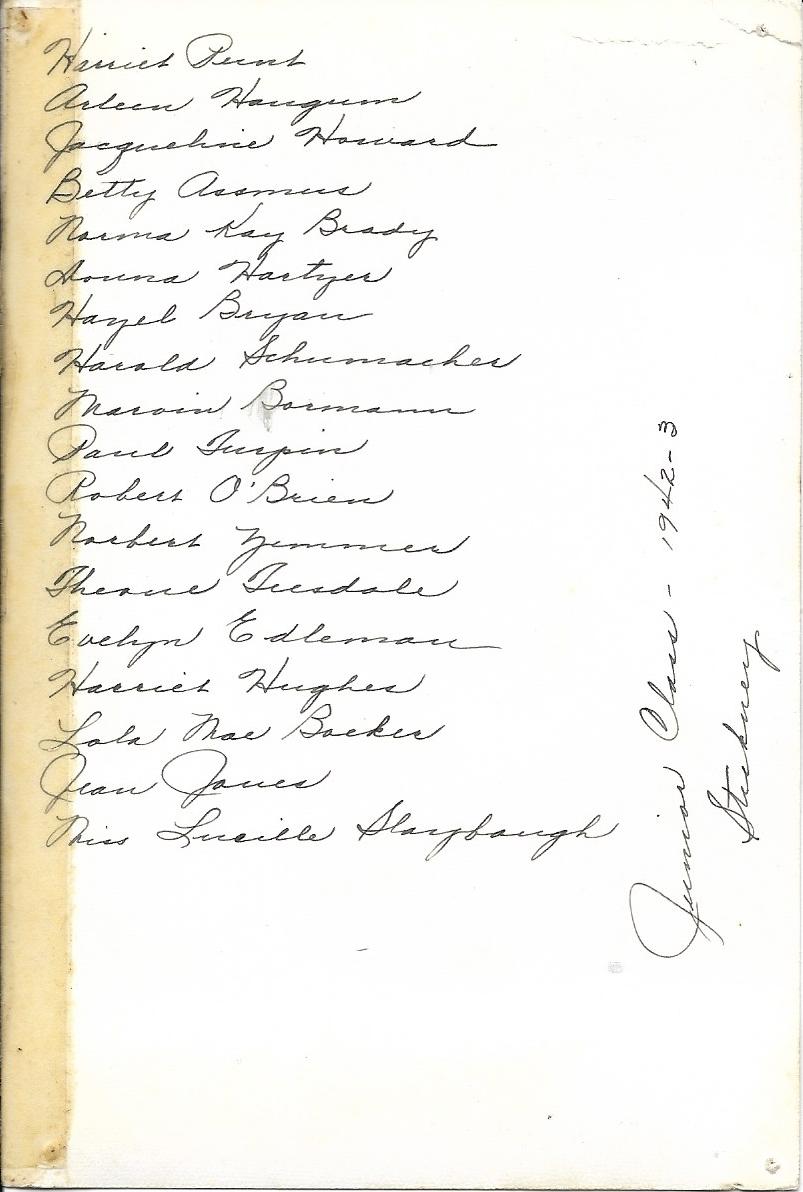 Harriet Punt
Arleen Haugum
Jacqueline Howard
Betty Assmus
Norma Kay Brady
Donna Hartzer
Hazel Bryan
Harold Schumacher
Marvin Bormann
Paul Turpin
Robert O'Brien
Norbert Zimmer
Theone Teesdale
Evelyn Edleman
Harriet Hughes
Lola Mae Boeker
Jean Jones
Miss Lucille Slaybaugh
Junior Class - 1942-3
Stickney